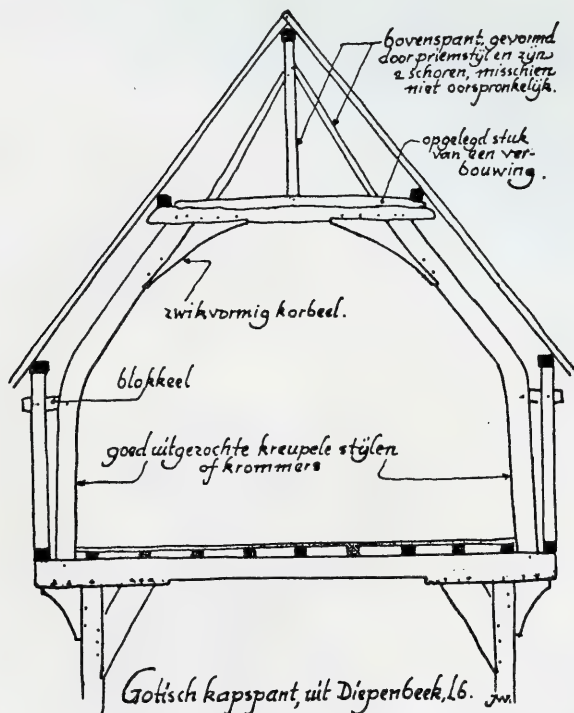 bovenspant, gevormd
door priemstijl en zijn
2 schoren, misschien
niet oorspronkelijk.
opgelegd stuk
van een ver-
bouwing.
zwikvormig korbeel.
blokkeel
goed uitgezochte kreupele stijlen
of krommers
Gotisch kapspant, uit Diepenbeek, L6.
JW.